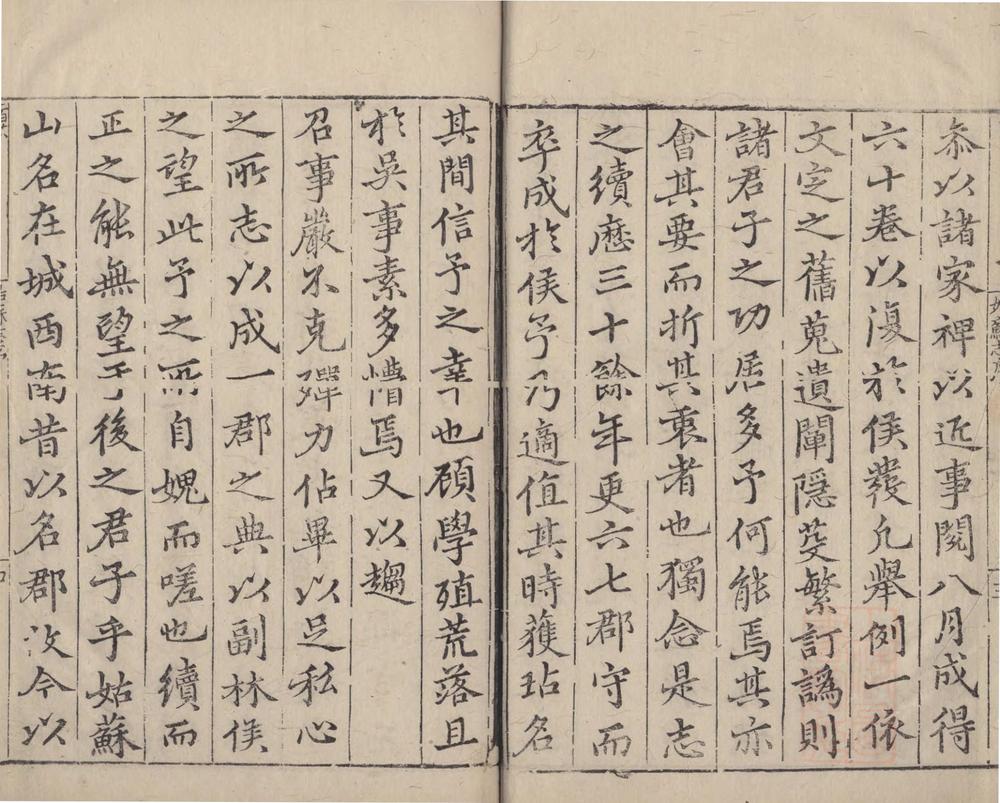 叅以諸家裨以近事閱八月成得
六十卷以復於侯𤼵凡舉例一依
文定之舊蒐遺闡隱芟繁訂譌則
諸君子之功居多予何能焉其亦
會其要而折其衷者也獨念是志
之續歷三十餘年更六七郡守而
卒成於侯予乃適值其時獲玷名
其間信予之幸也顧學殖荒落且
於吳事素多懵焉又以趨
召事嚴不克殫力佔畢以足私心
之所志以成一郡之典以副林侯
之望此予之所自媿而嗟也續而
正之能無望于後之君子乎姑蘇
山名在城西南昔以名郡汝今以